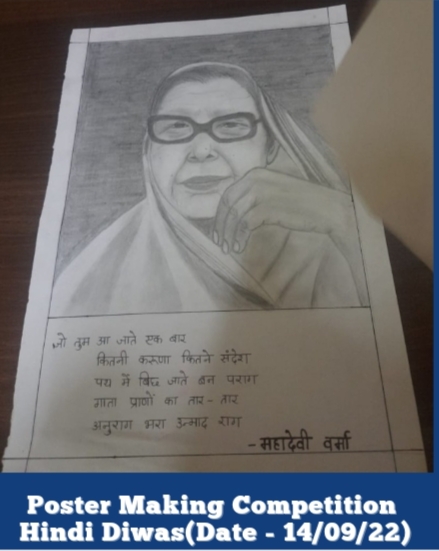 जो तुम आ जाते एक बार
कितनी करूणा कितने संदेश
पथ में बिछ जाते बन पराग
गाता प्राणों का तार - तार
अनुराग भरा उन्माद राग
- महादेवी वर्मा
Poster Making Competition
Hindi Diwas(Date - 14/09/22)